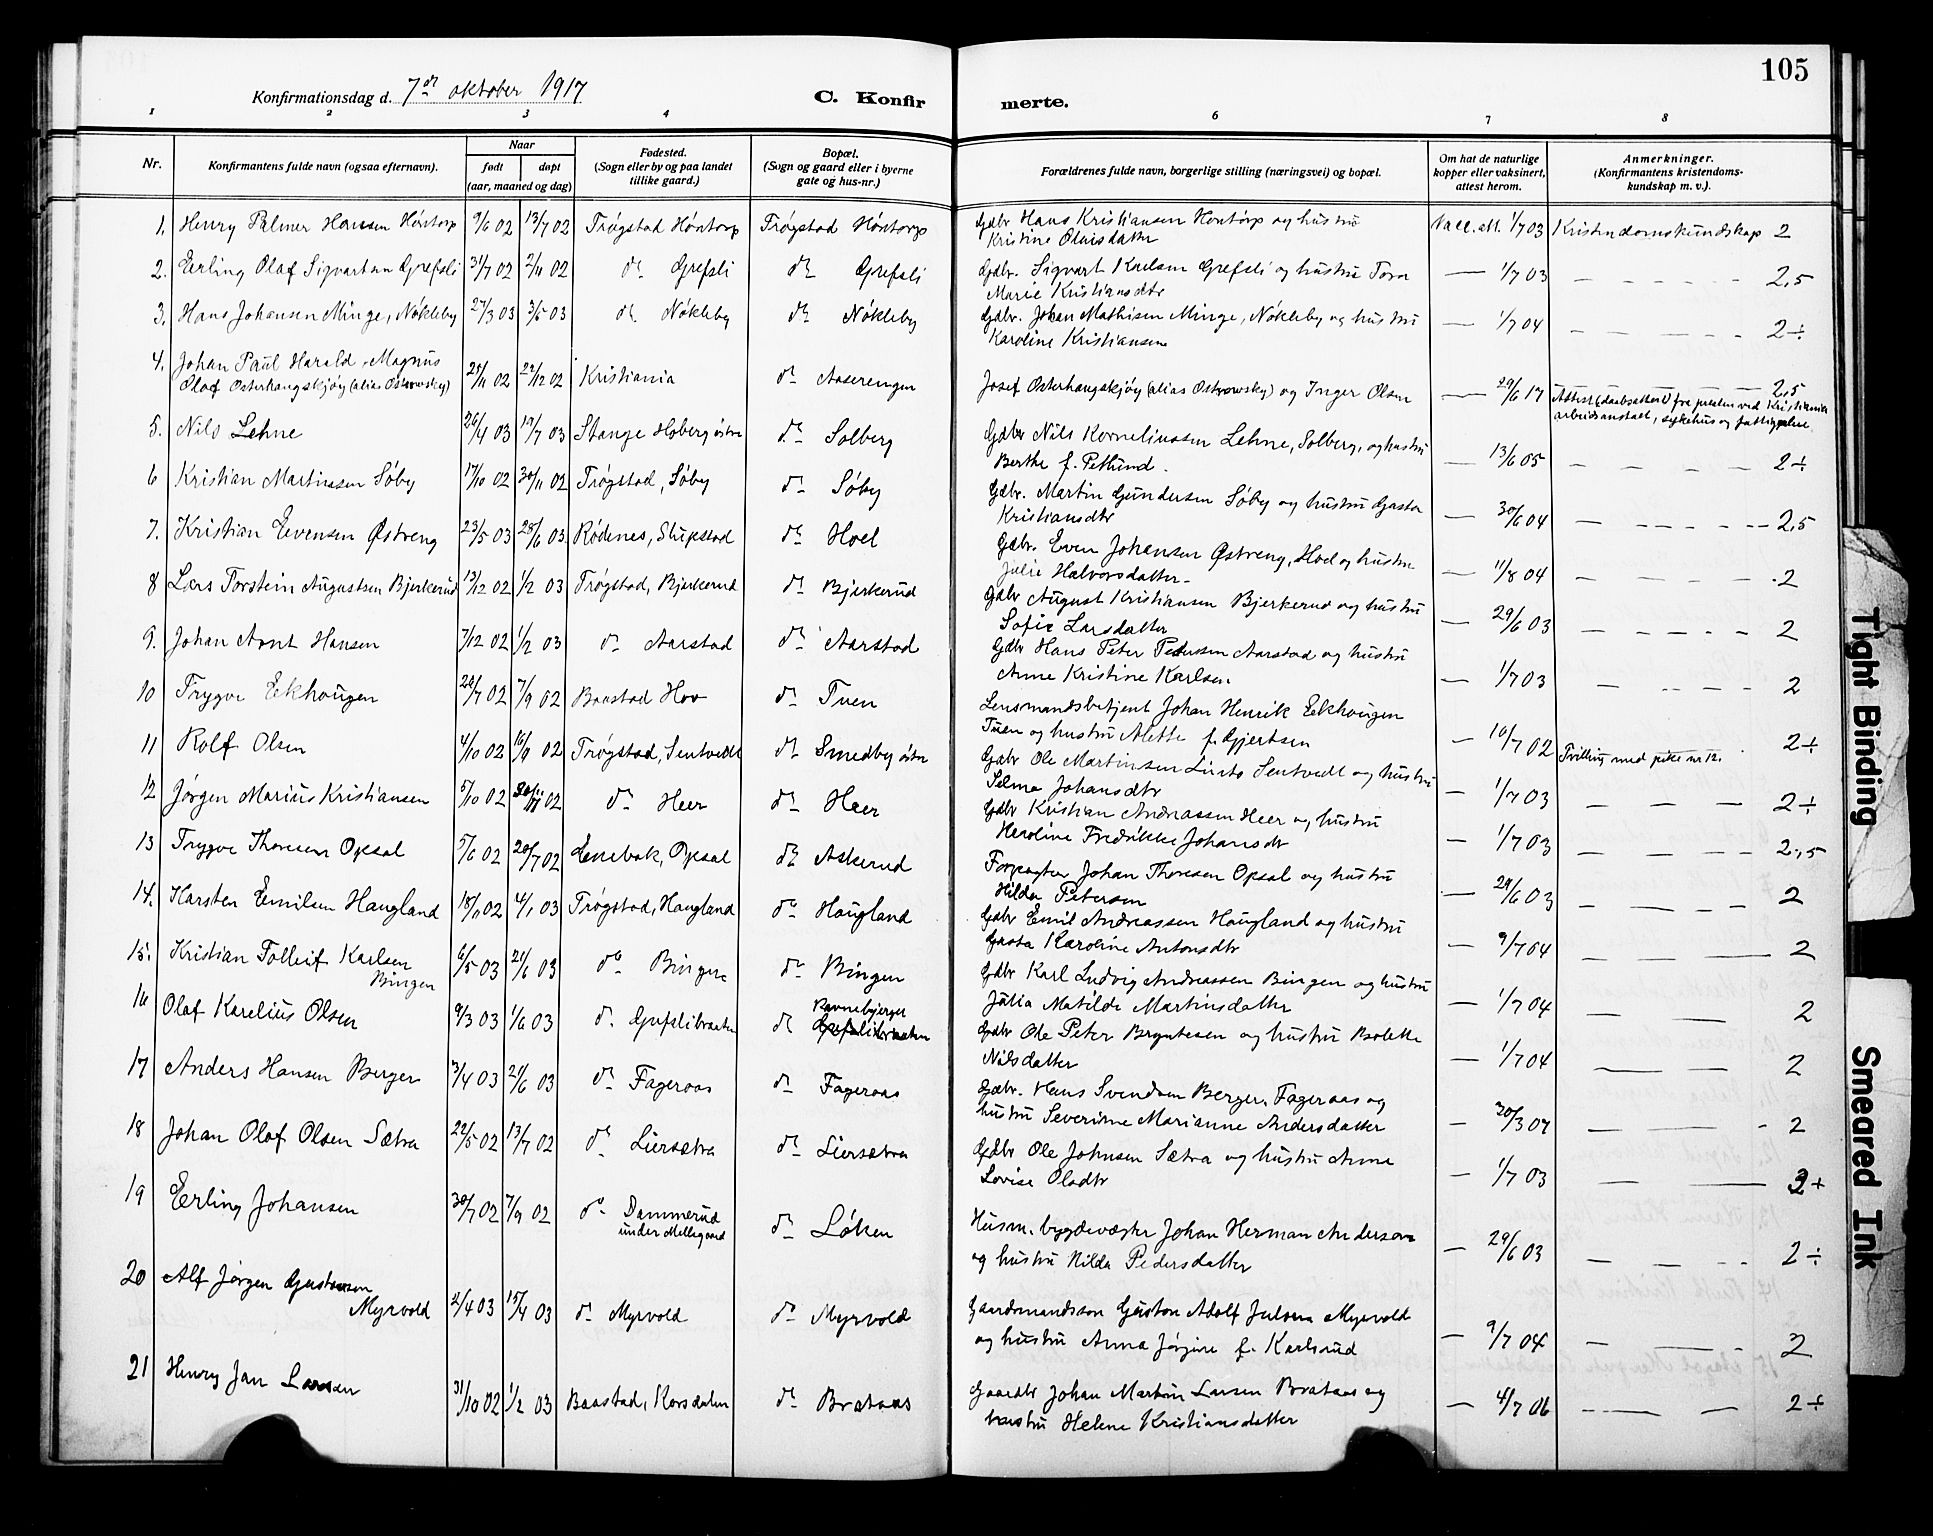 105
Konfirmationsdag d. 7de oktober 1917
C. Konfirmerte.
1 2 3 4 6 7 8
Nr. | Konfirmantens fulde navn (ogsaa efternavn). | Naar født | døpt (aar, maaned og dag) | Fødested. (Sogn eller by og paa landet tillike gaard.) | Bopæl. (Sogn og gaard eller i byerne gate og hus-nr.) | Forældrenes fulde navn, borgerlige stilling (næringsvei) og bopæl. | Om hat de naturlige kopper eller vaksinert, attest herom. | Anmerkninger. (Konfirmantens kristendomskundskap m. v.).
1. Henry Palmer Hanssen Høntorp | 9/6 02 | 13/7 02 | Trøgstad Høntorp | Trøgstad Høntorp | Gdbr Hans Kristiansen Høntorp og hustru Kristine Olausdatter | Vacc. att. 1/7 03 | Kristendomskundskap 2
2. Erling Olaf Sigvartsen Grefsli | 31/7 02 | 2/11 02 | do Grefsli | do Grefsli | Gdbr. Sigvart Karlsen Grefsli og hustru Tora Marie Kristiansdtr | — 1/7 03 | — 2,5
3. Hans Johansen Minge, Nøkleby | 27/3 03 | 3/5 03 | do Nøkleby | do Nøkleby | Gdbr. Johan Mathisen Minge, Nøkleby og hustru Karoline Kristiansen | — 1/7 04 | — 2÷
4. Johan Paul Harald Magnus Olaf Osterhaugskjøy (alias Ostrowsky) | 25/11 02 | 22/12 02 | Kristiania | do Aaserengen | Josef Osterhaugskjøy (alias Ostrowsky) og Inger Olsen | — 29/6 17 | — 2,5 Attest (daabsattest) fra presten ved Kristiania arbeidsanstalt, sykehus og fattigpleie.
5. Nils Lehne | 26/4 03 | 19/7 03 | Stange Hoberg østre | do Solberg | Gdbr Nils Korneliussen Lehne, Solberg, og hustru Berthe f. Petlund. | — 13/6 05 | — 2÷
6 Kristian Martinsen Søby | 17/10 02 | 30/11 02 | Trøgstad, Søby | do Søby | Gdbr. Martin Gundersen Søby og hustru Gusta Kristiansdtr | — 30/6 04 | — 2,5
7. Kristian Evensen Østreng | 23/5 03 | 28/6 03 | Rødenes, Slupstad | do Hoel | Gdbr. Even Johansen Østreng, Hoel og hustru Julie Halvorsdatter | — 11/8 04 | — 2
8 Lars Torstein Augustsen Bjerkerud | 13/12 02 | 1/2 03 | Trøgstad, Bjerkerud | do Bjerkerud | Gdbr August Kristiansen Bjerkerud og hustru Sofie Larsdatter | — 29/6 03 | — 2
9. Johan Arnt Hansen | 7/12 02 | 1/2 03 | do Aarstad | do Aarstad | Gdbr Hans Peter Pettersen Aarstad og hustru Anne Kristine Karlsen | — 1/7 03 | — 2
10 Trygve Eekhougen | 26/7 02 | 7/9 02 | Baastad Hov | do Tuen | Lensmandsbetjent Johan Henrik Eekhougen Tuen og hustru Alette f. Gjertsen | — 10/7 02 | Tvilling med pike nr 12. 2÷
11 Rolf Olsen | 4/10 02 | 16/9 02 | Trøgstad, Sentvedt | do Smedby østre | Gdbr Ole Martinsen Sentvedt og hustru Selma Johansdtr | — 1/7 03 | — 2÷
12 Jørgen Marius Kristiansen | 5/10 02 | 30/11 02 | do Heer | do Heer | Gdbr Kristian Andreassen Heer og hustru Heroline Fredrikke Johansdtr | — 1/7 03 | — 2,5
13 Trygve Thoresen Opsal | 5/6 02 | 20/7 02 | Enebak, Opsal | do Askerud | Forpagter Johan Thoresen Opsal og hustru Hilda Petersen | — 29/6 03 | — 2
14. Karsten Emilsen Haugland | 18/11 02 | 4/1 03 | Trøgstad, Haugland | do Haugland | Gdbr Emil Andreassen Haugland og hustru Gusta Karoline Antonsdtr | — 9/7 04 | — 2
15. Kristian Tolleif Karlsen Bingen | 6/5 03 | 21/6 03 | do Bingen | do Bingen | Gdbr Karl Ludvig Andreassen Bingen og hustru Julia Matilde Martinsdatter | — 1/7 04 | — 2
16 Olaf Karelius Olsen | 9/3 03 | 1/6 03 | do Grefslibraaten | do Ravnebjerget Grefslibraaten | Gdbr Ole Peter Bryntesen og hustru Bolette Nilsdatter | — 1/7 04 | — 2
17 Anders Hansen Berger | 3/4 03 | 21/6 03 | do Fageraas | do Fageraas | Gdbr. Hans Svendsen Berger, Fageraas og hustru Severine Marianne Andersdatter | — 30/3 07 | — 2
18 Johan Olaf Olsen Sætra | 22/5 02 | 13/7 02 | do Liersætra | do Liersætra | Gdbr Ole Johnsen Sætra og hustru Anne Lovise Olsdtr | — 1/7 03 | — 2+
19 Erling Johansen | 30/7 02 | 7/9 02 | do Dammerud under Mellegaard | do Løken | Husm. bygdevægter Johan Herman Anderson og hustru Hilda Pedersdatter | — 29/6 03 | — 2÷
20 Alf Jørgen Gustavsen Myrvold | 2/4 03 | 15/4 03 | do Myrvold | do Myrvold | Gaardmandssøn Gustav Adolf Julsen Myrvold og hustru Anna Jørgine f. Karlsrud | — 9/7 04 | — 2
21 Henry Jan Larsen | 31/10 02 | 1/2 03 | Baastad, Korsdalen | do Brataas | Gaardbr Johan Martin Larsen Brataas og hustru Helene Kristiansdatter | — 4/7 06 | — 2÷
Tight Binding
Smeared Ink